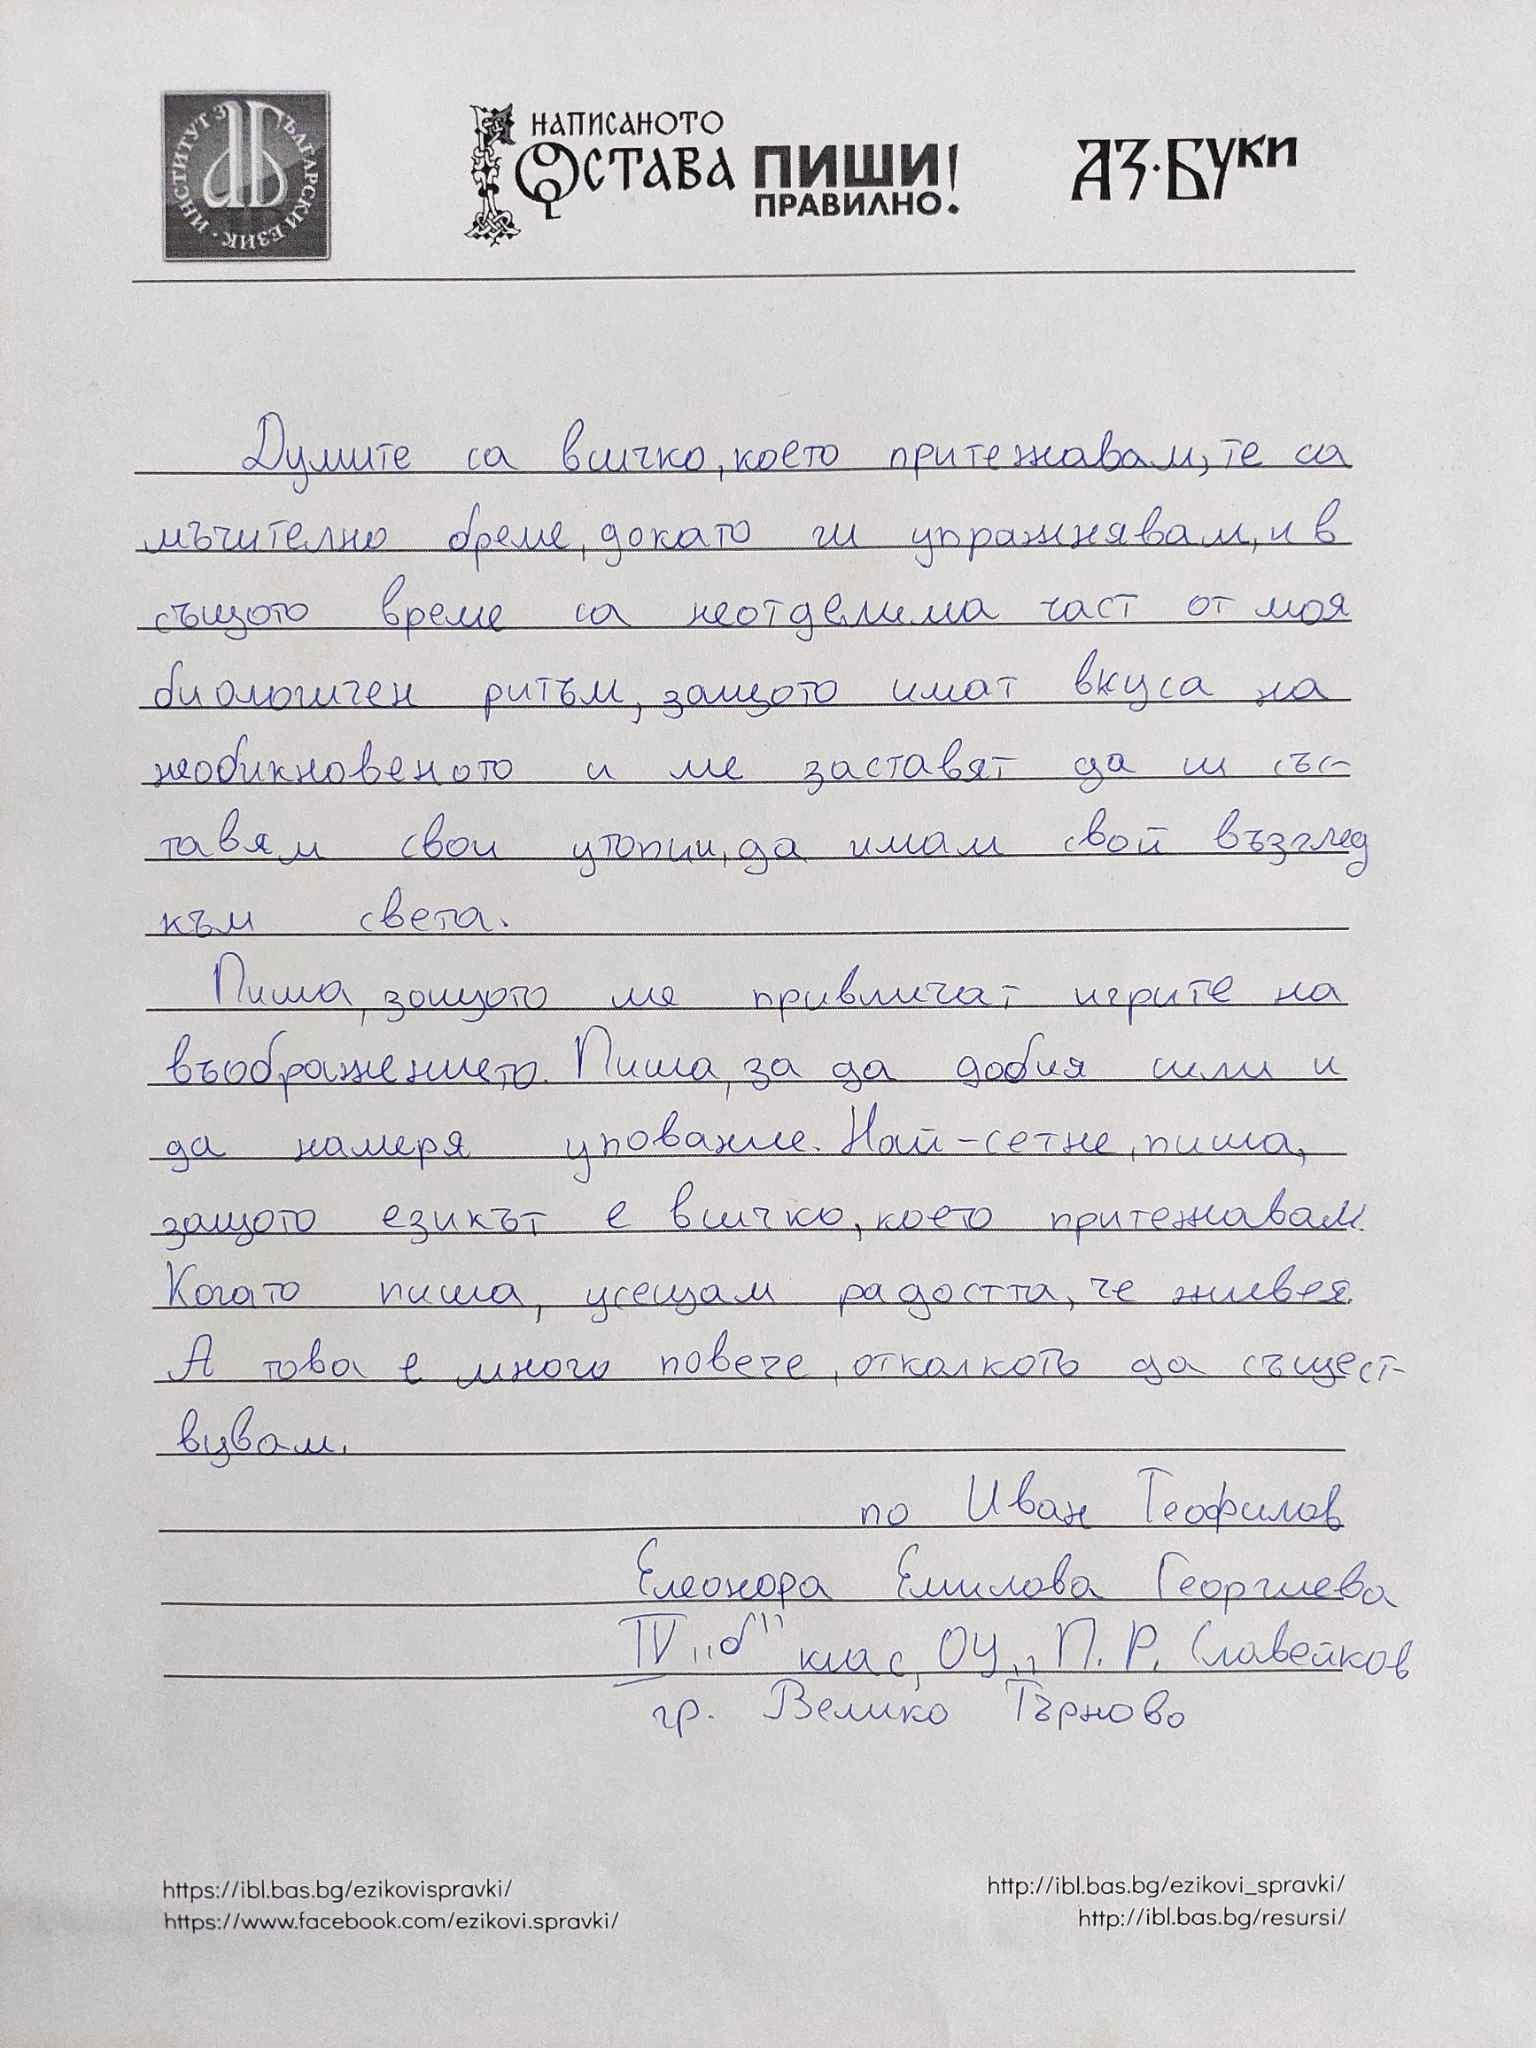 ИНСТИТУТ ЗА БЪЛГАРСКИ ЕЗИК
НАПИСАНОТО
ОСТАВА ПИШИ
ПРАВИЛНО!
АЗ·БУКИ
Думите са всичко, което притежавам, те са
мъчително бреме, докато ги упражнявам, и в
същото време са неотделима част от моя
биологичен ритъм, защото имат вкуса на
необикновеното и ме заставят да си със-
тавям свои утопии, да имам свой възглед
към света.
Пиша, защото ме привличат игрите на
въображението. Пиша, за да добия сили и
да намеря упование. Най-сетне, пиша,
защото езикът е всичко, което притежавам.
Когато пиша, усещам радостта, че живея.
А това е много повече, отколкото да същест-
вувам.
по Иван Теофилов
Елеонора Емилова Георгиева
IV „б" клас, ОУ „П. Р. Славейков
гр. Велико Търново
https://ibl.bas.bg/ezikovispravki/ http://ibl.bas.bg/ezikovi_spravki/
https://www.facebook.com/ezikovi.spravki/ http://ibl.bas.bg/resursi/